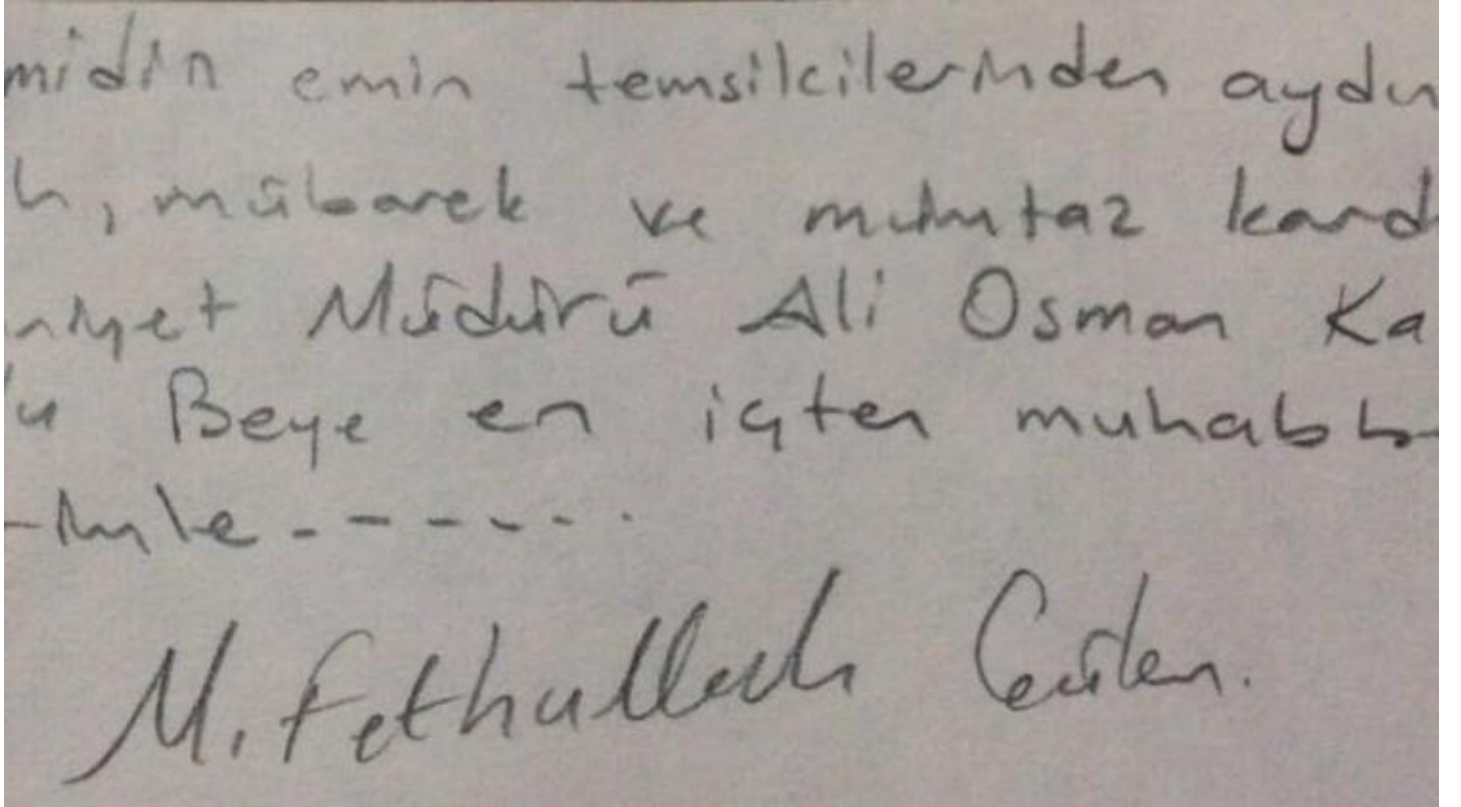 midin emin temsilcilerinden aydın
h, mübarek ve mümtaz kard
niyet Müdürü Ali Osman Ka
lu Beye en içten muhabb
-iyle - - - - - - .
M. Fethullah Gülen.